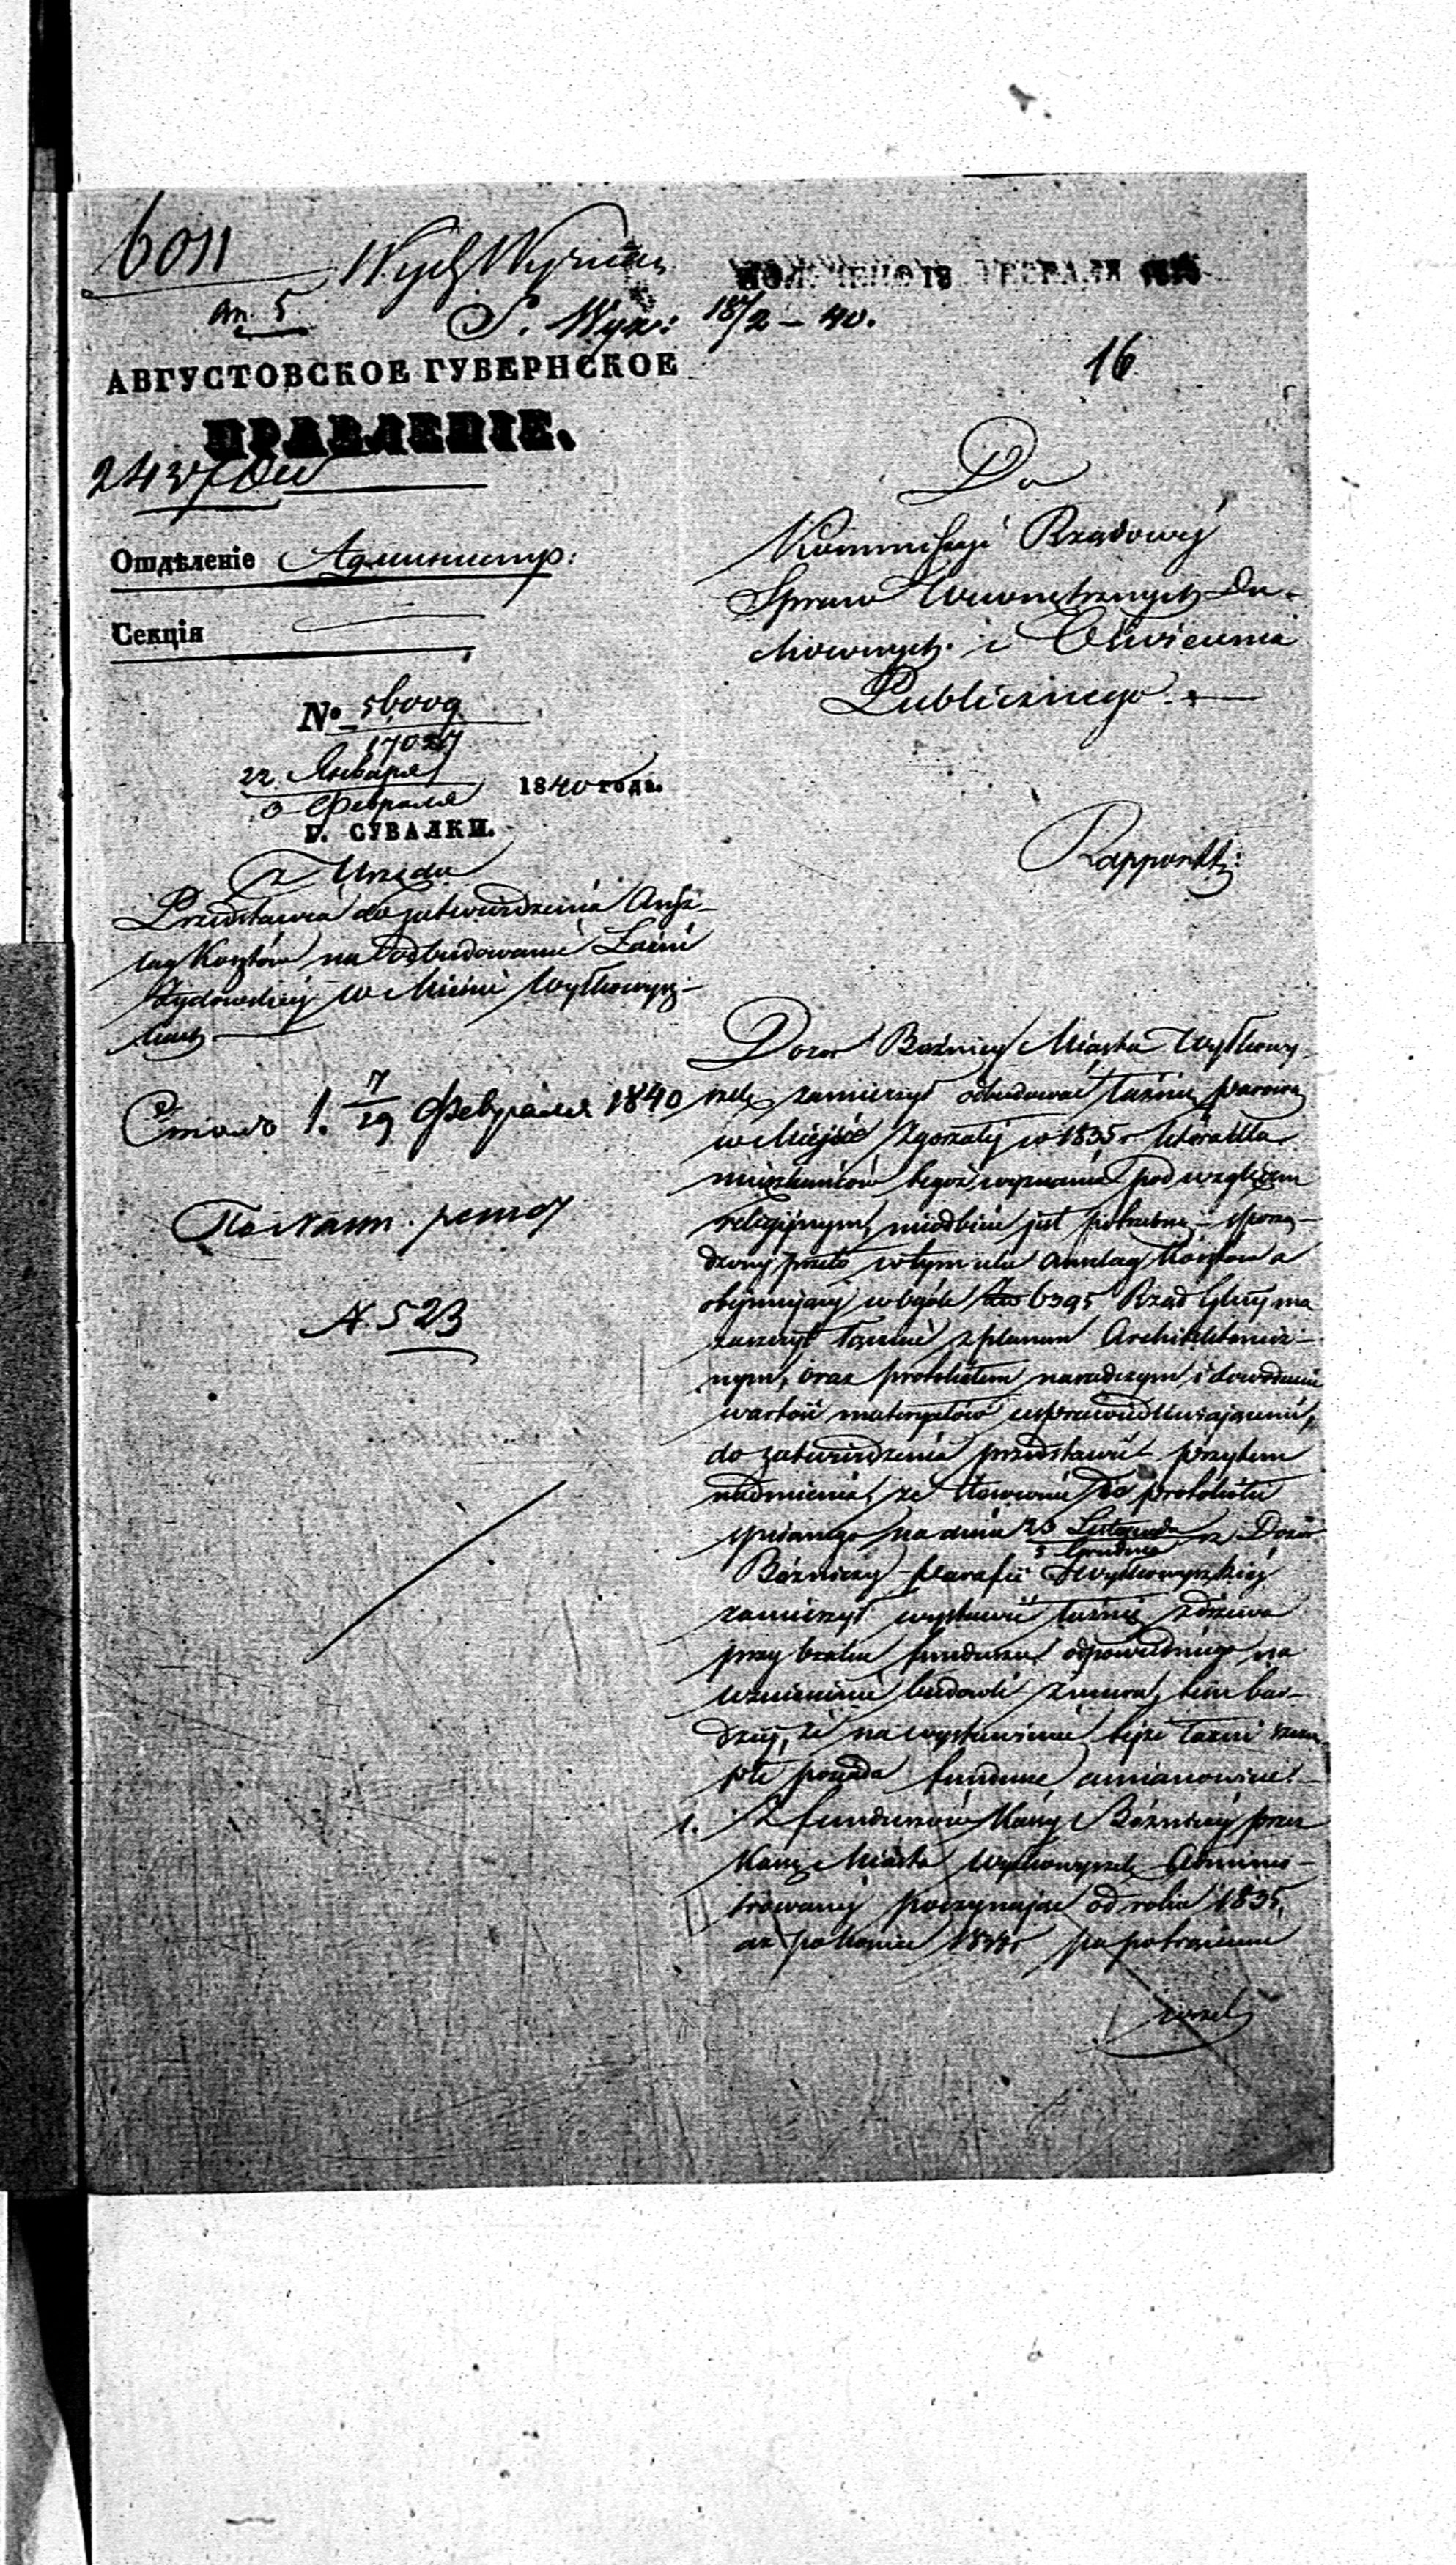 6011
an. 5
S. Wyz:
18/2 – 40.
16
АВГУСТОВСКОЕ ГУБЕРНСКОЕ
ПРАВЛЕНІЕ.
Отдѣленіе Администр:
Секція
№ 56009
17027
22 Января
3 Февраля
1840 года.
Г. СУВАЛКИ.
z Urzędu
Przedstawia do zatwierdzenia Ansz-
lag Kosztów na odbudowanie Łaźni
Żydowskiej w Mieście Wyłkowysz-
kach
Столъ 1. 7/19 Февраля 1840
N. 523
Do
Kommissyi Rządowéy
Spraw Wewnętrznych Du-
chownych i Oświecenia
Publicznego.
Rapport:
Dozór Bóżniczy Miasta Wyłkowy-
szek zamierzył odbudować łaźnię parową
w Miejsce zgorzałej w 1835 r. która dla
mieszkańców tegoż wyznania pod względem
religijnym, niezbędnie jest potrzebną – sporzą-
dzony przeto w tym celu anszlag kosztów a
obejmujący w ogóle 6395 Rząd Glny ma
zaszczyt łącznie z planem Architektonicz-
nym, oraz protokółem naradczym i dowodami
wartość materyałów usprawiedliwiającemi,
do zatwierdzenia przedstawić – przytem
nadmienia, że stosownie do protokółu
spisanego na dniu 23 Listopada r. z. Dozór
5 Grudnia
Bóżniczy parafii Wyłkowyszkiéy
zamierzył wystawić łaźnię z drzewa
przy braku funduszu odpowiedniego na
wzniesienie budowli z muru, tem bar-
dziej, że na wystawienie tejże łaźni szczu-
płe posiada fundusze a mianowicie:
1. Z funduszów Kassy Bóżniczéy przez
Kassę Miasta Wyłkowyszek Adminis-
trowanéy poczynając od roku 1835,
aż po koniec 1838 r po potrąceniu